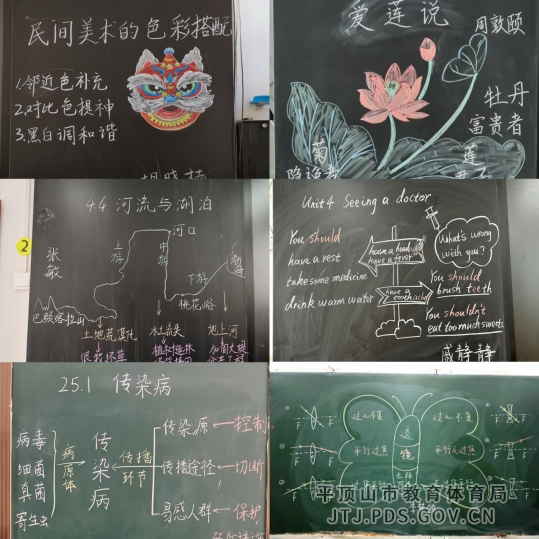 民间美术的色彩搭配
1.邻近色补充
2.对比色提神
3.黑白调和谐
爱莲说
周敦颐
牡丹
富贵者
菊
隐逸者
莲
4.4 河流与湖泊
河口
上游
中游
下游
桃花峪
张敏
巴颜喀拉山
土地荒漠化
水土流失
地上河
2
Unit 4 Seeing a doctor
You should
have a rest
take some medicine
drink warm water
have a headache
have a fever
have a toothache
What's wrong
with you?
You should
brush teeth
You shouldn't
eat too much sweets
戚静静
25.1 传染病
病毒
细菌
真菌
寄生虫
病原体
传染病
传播
环节
传染源
控制
传播途径
切断
易感人群
保护
过心不变
过心不变
平行过焦
平行反过焦
透镜
F
F
F
平顶山市教育体育局
JTJ.PDS.GOV.CN